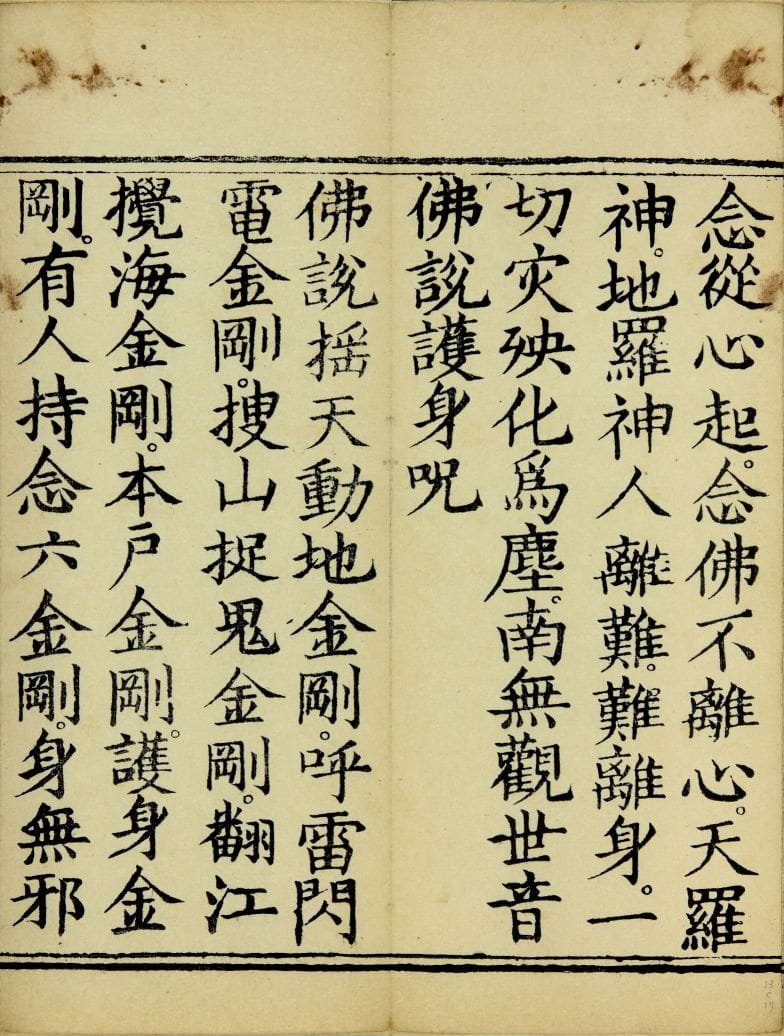 念從心起。念佛不離心。天羅
神。地羅神人離難。難離身。一
切灾殃化爲塵。南無觀世音
佛說護身呪
佛說揺天動地金剛。呼雷閃
電金剛。搜山捉鬼金剛。翻江
攪海金剛。本戶金剛。護身金
剛。有人持念六金剛。身無邪